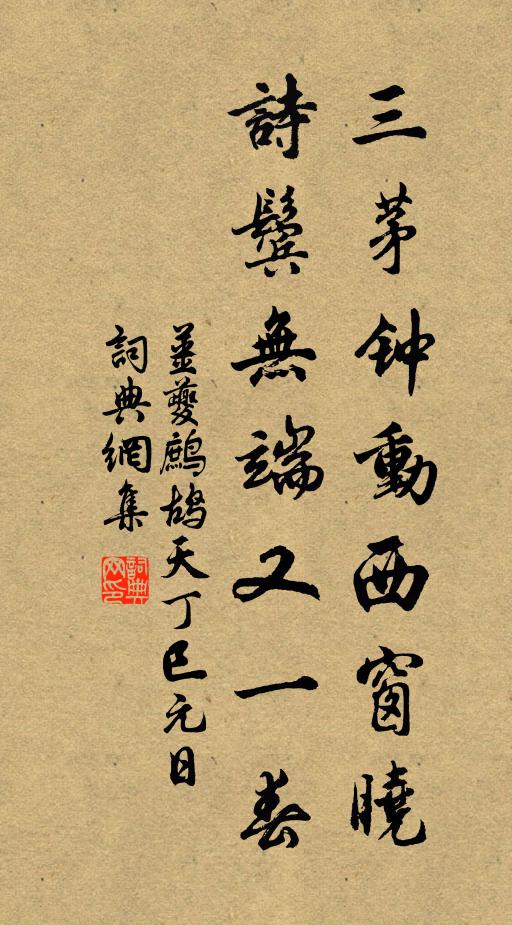 三茅钟動西窗曉
詩鬢無端又一春
姜夔鷓鴣天丁巳元日
詞典網集
詞典網印